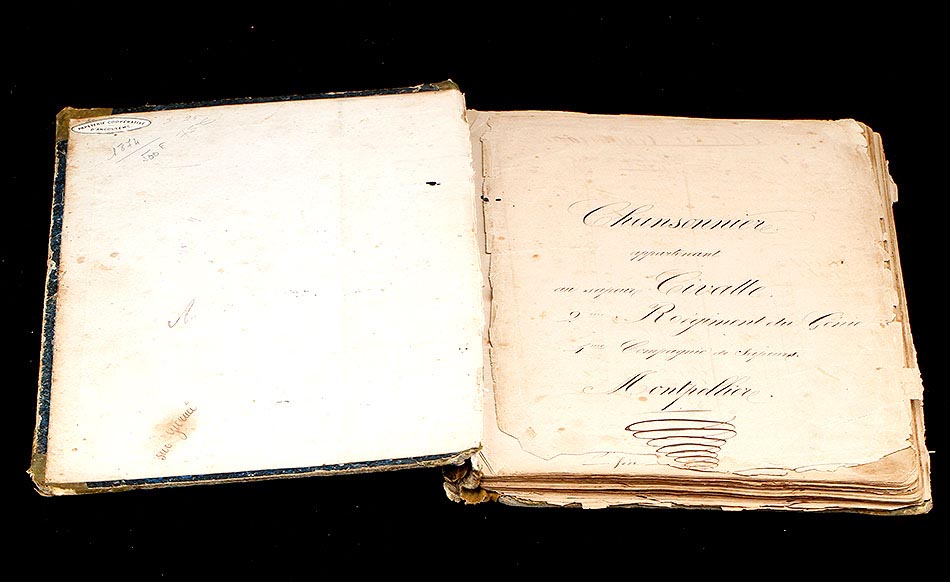 PAPETERIE COOPERATIVE
D'ANGOULEME
1874
500 F
Chansonnier
appartenant
au sapeur, Civatte.
2me Régiment du Génie
Compagnie de Sapeurs.
Montpellier.